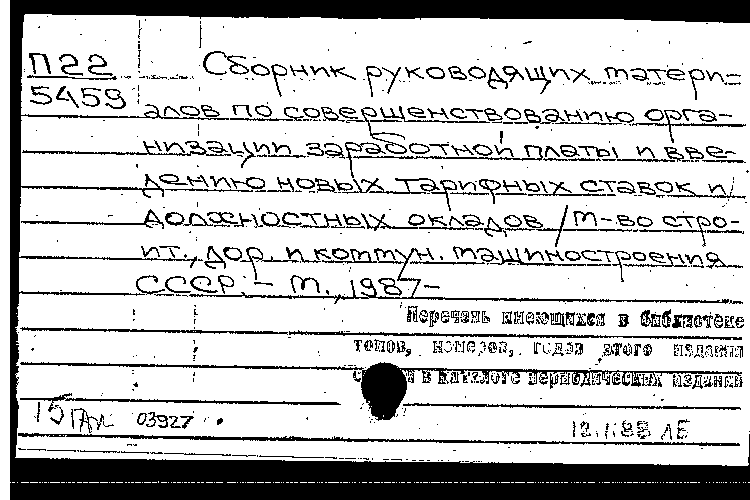 П22
5459
Сборник руководящих матери=
алов по совершенствованию орга-
низации заработной платы и вве-
дению новых тарифных ставок и
должностных окладов / М-во стро-
ит., дор. и коммун. машиностроения
СССР. - М., 1987-
Перечень имеющихся в библиотеке
томов, номеров, годов этого издания
в каталоге периодических изданий
03927
12.1.88